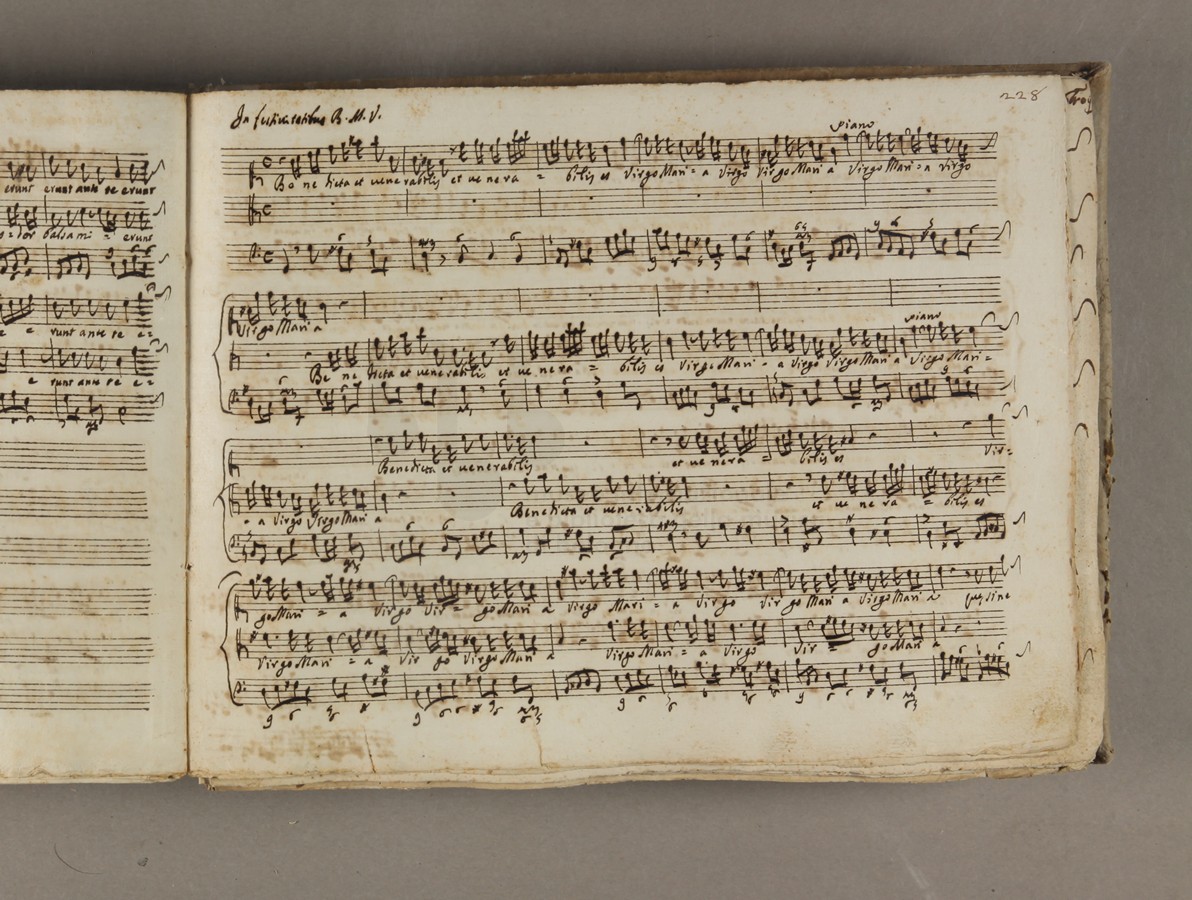 erunt erunt ante te erunt
balsami = erunt
e runt ante te e =
e runt ante te e =
228
In festivitatibus B. M. V.
piano
Be ne dicta et venerabilis et ve ne ra = bilis es Virgo Mari = a Virgo Virgo Mari a Virgo Mari = a Virgo
Virgo Maria
piano
Be ne dicta et venerabilis et ve ne ra = bilis es Virgo Mari = a Virgo Virgo Mari a Virgo Mari =
Benedicta et venerabilis et ve ne ra = bilis es Vir =
- a Virgo Virgo Mari a Benedicta et vene rabilis et ve ne ra = bilis es
go Mari = a Virgo Vir = go Mari a Virgo Mari = a Virgo Vir go Mari a Virgo Mari a quae sine
Virgo Mari = a Vir go Virgo Mari a Virgo Mari = a Virgo Vir = go Mari a